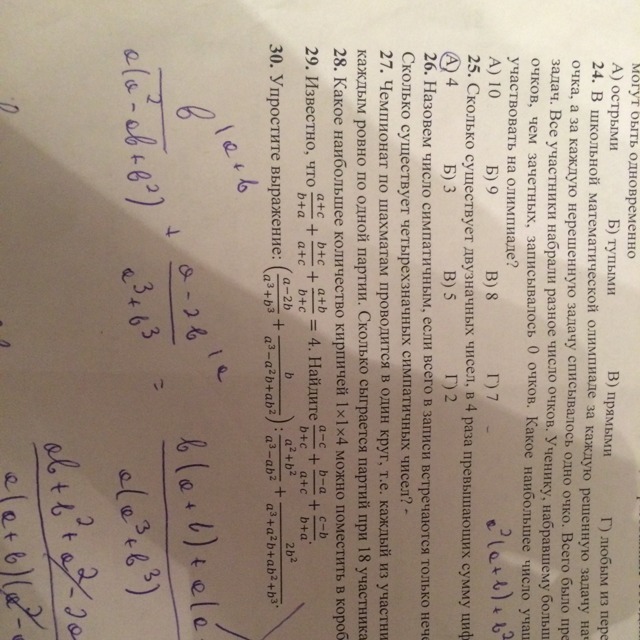 могут быть одновременно
А) острыми Б) тупыми В) прямыми Г) любым из
24. В школьной математической олимпиаде за каждую решенную задачу
очка, а за каждую нерешенную задачу списывалось одно очко. Всего было
задач. Все участники набрали разное число очков. Ученику, набравшему
очков, чем зачетных, записывалось 0 очков. Какое наибольшее число
участвовать на олимпиаде?
А) 10 Б) 9 В) 8 Г) 7 -
25. Сколько существует двузначных чисел, в 4 раза превышающих сумму
А) 4 Б) 3 В) 5 Г) 2
26. Назовем число симпатичным, если всего в записи встречаются только
Сколько существует четырехзначных симпатичных чисел? -
27. Чемпионат по шахматам проводится в один круг, т.е. каждый из
каждым ровно по одной партии. Сколько сыграется партий при 18
28. Какое наибольшее количество кирпичей 1×1×4 можно поместить в
29. Известно, что (a+c)/(b+a) + (b+c)/(a+c) + (a+b)/(b+c) = 4. Найдите (a−c)/(b+c) + (b−a)/(a+c) + (c−b)/(b+a).
30. Упростите выражение: ((a−2b)/(a³+b³) + b/(a³−a²b+ab²)) : (a²+b²)/(a³−ab²) + 2b²/(a³+a²b+ab²+b³).
b \a+b
a(a²-ab+b²) + a-2b \a
a³+b³ =
b(a+b)+a(a
a(a³+b³)
ab+b²+a²-2a